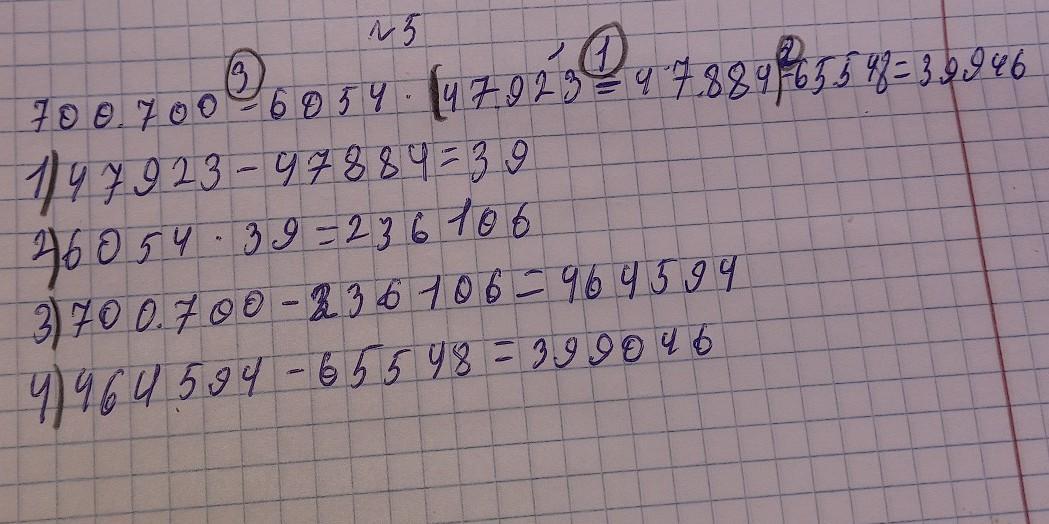 №5
700.700 - 6054 · (47.923 - 47.884) - 65548 = 39946
1) 47923 - 47884 = 39
2) 6054 · 39 = 236106
3) 700.700 - 236106 = 464594
4) 464594 - 65548 = 399046